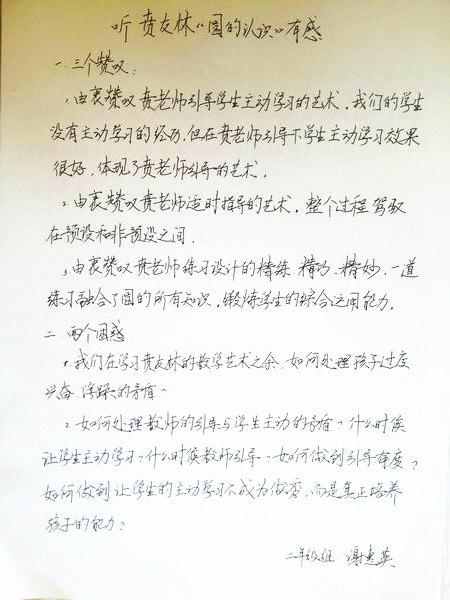 听贲友林“圆的认识”有感
一.三个赞叹:
1.由衷赞叹贲老师引导学生主动学习的艺术.我们的学生
没有主动学习的经历,但在贲老师引导下学生主动学习效果
很好,体现了贲老师引导的艺术.
2.由衷赞叹贲老师适时指导的艺术,整个过程驾驭
在预设和非预设之间.
3.由衷赞叹贲老师练习设计的精练.精巧.精妙.一道
练习融合了圆的所有知识,锻炼学生的综合运用能力.
二 两个困惑
1.我们在学习贲友林的教学艺术之余,如何处理孩子过度
兴奋.浮躁的矛盾.
2.如何处理教师的引导与学生主动的矛盾?什么时候
让学生主动学习?什么时候教师引导?如何做到引导有度?
如何做到让学生的主动学习不成为做秀,而是真正培养
孩子的能力?
二年级组 谢惠英